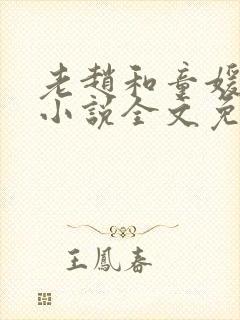 老趙和童媛
小說全文免
王鳳春